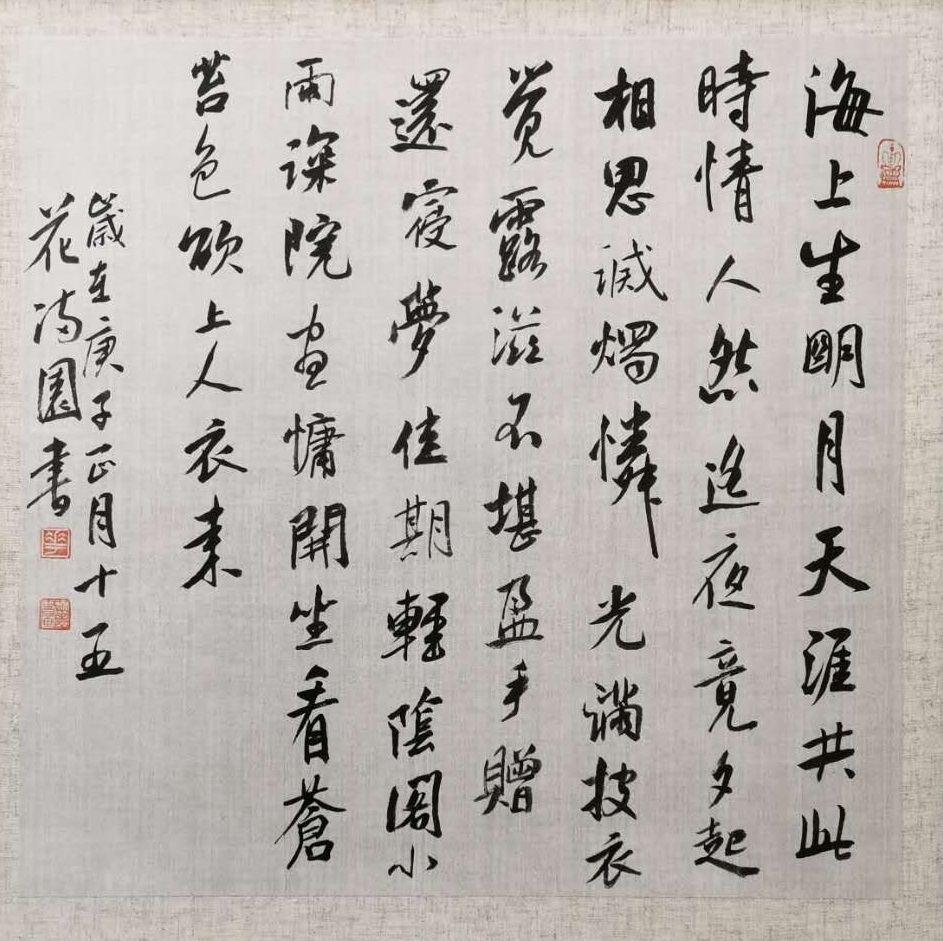 海上生明月天涯共此
時情人怨遥夜竟夕起
相思滅燭憐光滿披衣
觉露滋不堪盈手贈
還寝夢佳期輕陰閣小
雨深院画慵開坐看蒼
苔色欲上人衣来
歲在庚子正月十五
花满園書